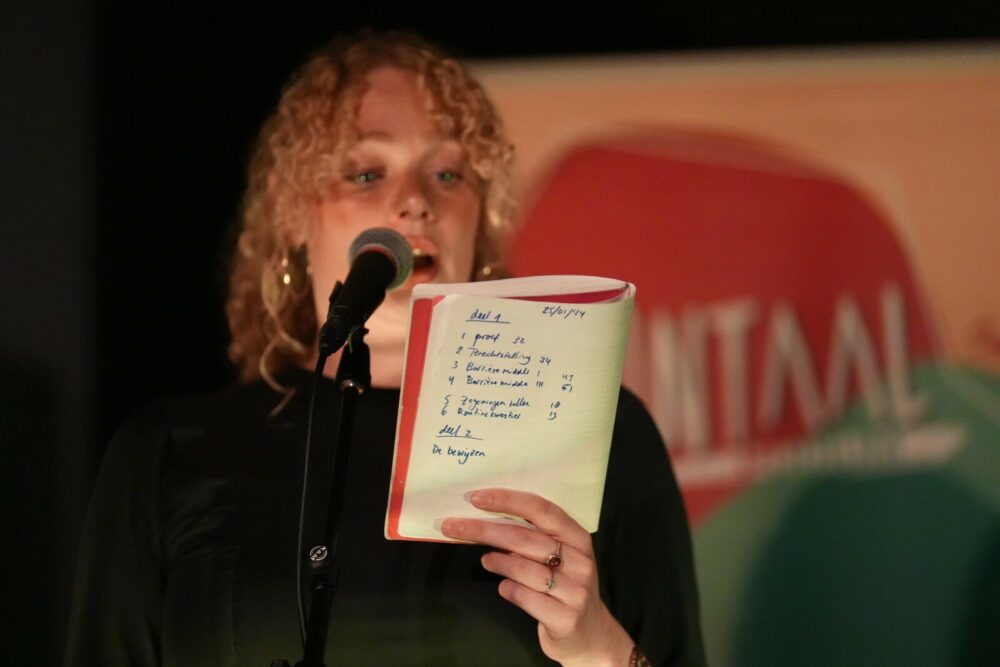 deel 1 25/01/'24
1 proef 32
2 Terechtstelling 34
3 Barrière middels 1
4 Barrière middels III 61
5 Zegeningen teller 18
6 Routinekwesties 13
deel 2
De bewijzen
TAAL